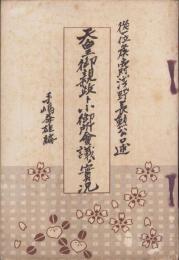 從位侯爵浅野長勲公口述
天皇御親政ト小御所會議ノ實況
手嶋益雄編